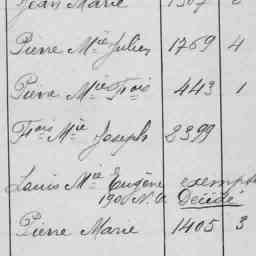 Jean Marie 1507 6
Pierre Mie Julien 1769 4
Pierre Mie Frois 443 1
Frois Mie Joseph 2399
Louis Mie Eugène exempté
1900 N.A. Décédé
Pierre Marie 1405 3